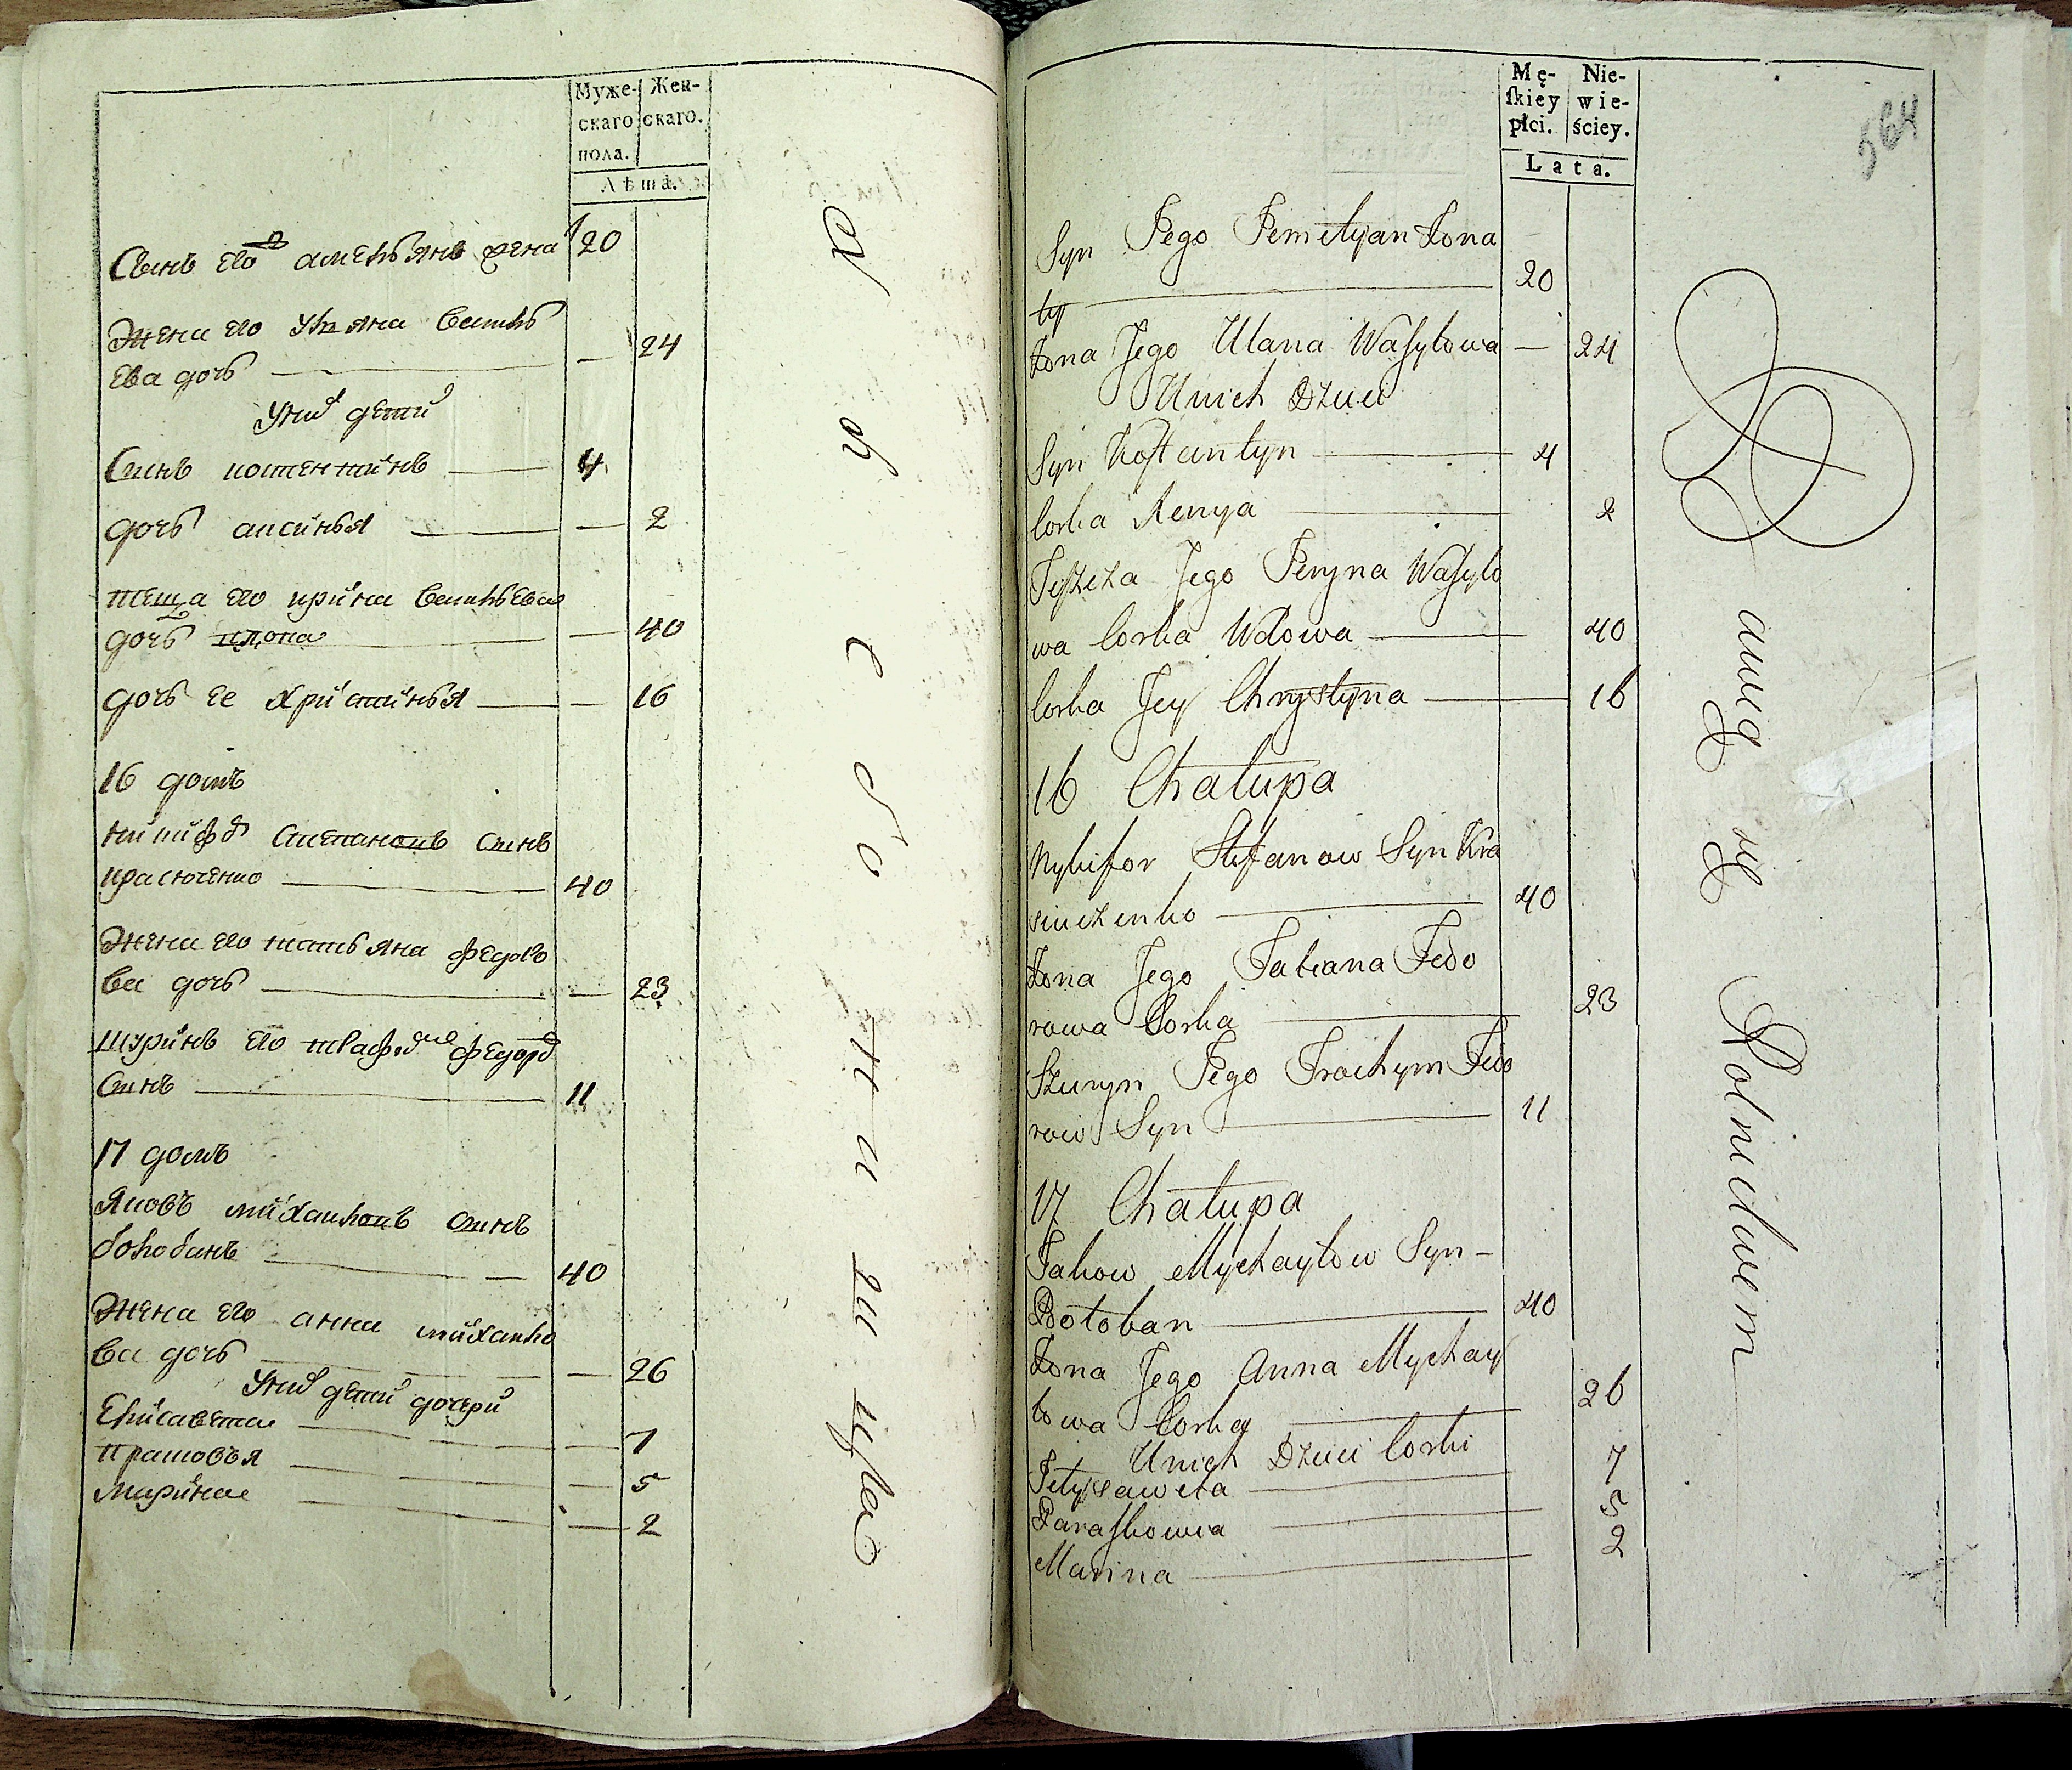 Муже-
скаго
пола.
Жен-
скаго.
Лѣта.
Сынъ его емельянъ жена 20
Жена его ульяна василь
ева дочь — 24
У них дети
Сынъ костентинъ 4
дочь аксинья — 2
теща его ирина васильева
дочь вдова — 40
дочь ее христинья — 16
16 домъ
никифоръ степановъ сынъ
красюченко 40
Жена его татьяна федоро
ва дочь — 23
шуринъ его трафим федоров
сынъ 11
17 домъ
Яковъ михаиловъ сынъ
болобанъ 40
Жена его анна михаило
ва дочь — 26
У них дети дочери
Елисавета — 7
прасковья — 5
марина — 2
Mę-
ſkiey
płci.
Nie-
wie-
ściey.
Lata.
564
Syn Jego Jemelyan Żona
ty 20
Żona Jego Ulana Wasylowa — 24
U nich Dzieci
Syn Kostantyn 4
Corka Xenya 2
Teszcza Jego Jeryna Wasylo
wa Corka Wdowa 40
Corka Jey Chrystyna 16
16 Chałupa
Nykifor Stefanow Syn Kra
siuczenko 40
Żona Jego Tatiana Fedo
rowa Corka 23
Szuryn Jego Trochym Fedo
row Syn 11
17 Chałupa
Jakow Mychayłow Syn —
Bołoban 40
Żona Jego Anna Mychay
łowa Corka 26
U nich Dzieci Corki
Jelysaweta 7
Paraskowia 5
Marina 2